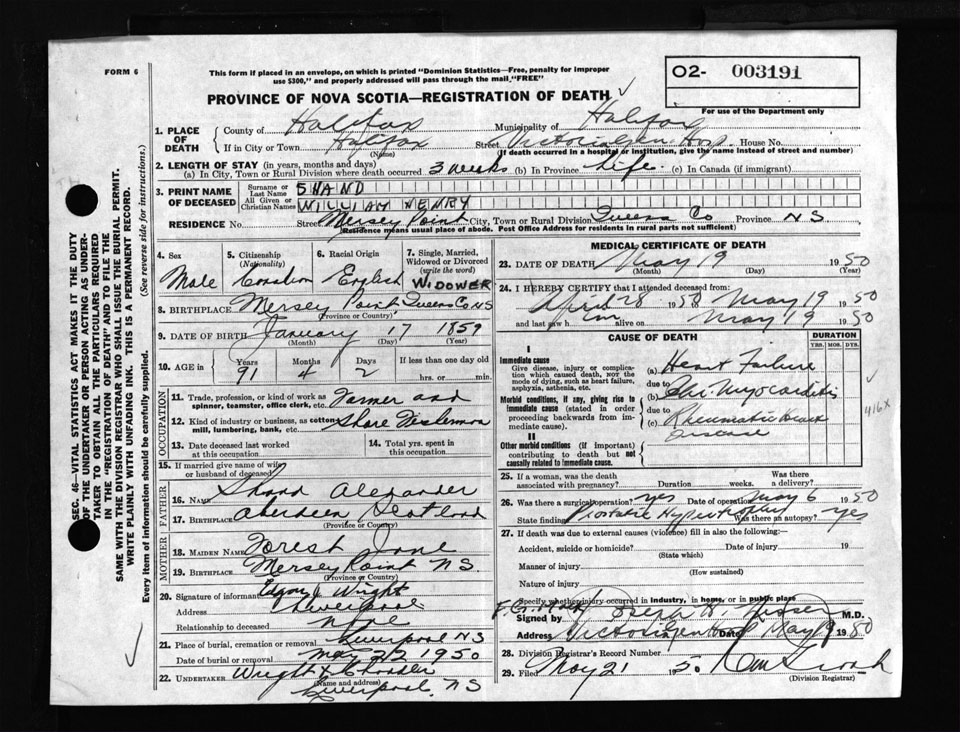 FORM 6
This form if placed in an envelope, on which is printed "Dominion Statistics—Free, penalty for improper
use $300," and properly addressed will pass through the mail "FREE"
O2- 003191
PROVINCE OF NOVA SCOTIA—REGISTRATION OF DEATH
For use of the Department only
1. PLACE OF DEATH County of Halifax Municipality of Halifax
If in City or Town Halifax (Name) Street Victoria Gen Hosp. House No.
(If death occurred in a hospital or institution, give the name instead of street and number)
2. LENGTH OF STAY (in years, months and days)
(a) In City, Town or Rural Division where death occurred 3 weeks (b) In Province Life (c) In Canada (if immigrant)
3. PRINT NAME OF DECEASED Surname or Last Name SHAND
All Given or Christian Names WILLIAM HENRY
RESIDENCE No. Street Mersey Point City, Town or Rural Division Queens Co Province NS
(Residence means usual place of abode. Post Office Address for residents in rural parts not sufficient)
4. Sex Male
5. Citizenship (Nationality) Canadian
6. Racial Origin English
7. Single, Married, Widowed or Divorced (write the word) WIDOWER
8. BIRTHPLACE Mersey Point, Queens Co NS (Province or Country)
9. DATE OF BIRTH January (Month) 17 (Day) 1859 (Year)
10. AGE in Years 91 Months 4 Days 2 If less than one day old hrs. or min.
OCCUPATION
11. Trade, profession, or kind of work as spinner, teamster, office clerk, etc. Farmer and
12. Kind of industry or business, as cotton mill, lumbering, bank, etc. Shore Fisherman
13. Date deceased last worked at this occupation
14. Total yrs. spent in this occupation
15. If married give name of wife or husband of deceased
FATHER
16. NAME Shand Alexander
17. BIRTHPLACE Aberdeen Scotland (Province or Country)
MOTHER
18. MAIDEN NAME Forest Jane
19. BIRTHPLACE Mersey Point N.S. (Province or Country)
20. Signature of informant Edgar J Wright
Address Liverpool
Relationship to deceased
21. Place of burial, cremation or removal Liverpool NS
Date of burial or removal May 22 1950
22. UNDERTAKER Wright &
(Name and address) Liverpool, NS
MEDICAL CERTIFICATE OF DEATH
23. DATE OF DEATH May 19 1950
(Month) (Day) (Year)
24. I HEREBY CERTIFY that I attended deceased from:
April 28 1950 to May 19 1950
and last saw him alive on May 19 1950
CAUSE OF DEATH DURATION
YRS. MOS. DYS.
I
Immediate cause
Give disease, injury or complication which caused death, not the mode of dying, such as heart failure, asphyxia, asthenia, etc.
(a) Heart Failure
due to
Morbid conditions, if any, giving rise to immediate cause (stated in order proceeding backwards from immediate cause).
(b) Chr. Myocarditis
due to
(c) Rheumatic Heart Disease
416X
II
Other morbid conditions (if important) contributing to death but not causally related to immediate cause.
25. If a woman, was the death associated with pregnancy? Duration weeks. Was there a delivery?
26. Was there a surgical operation? yes Date of operation May 6 1950
State finding Prostatic Hypertrophy Was there an autopsy? yes
27. If death was due to external causes (violence) fill in also the following:—
Accident, suicide or homicide? (State which) Date of injury 19
Manner of injury (How sustained)
Nature of injury
Specify whether injury occurred in industry, in home, or in public place
Signed by M.D.
Address Victoria Gen Hosp Date May 19 1950
28. Division Registrar's Record Number
29. Filed May 21
(Division Registrar)
SEC. 46—VITAL STATISTICS ACT MAKES IT THE DUTY
OF THE UNDERTAKER OR PERSON ACTING AS UNDER-
TAKER TO OBTAIN ALL THE PARTICULARS REQUIRED
IN THE "REGISTRATION OF DEATH" AND TO FILE THE
SAME WITH THE DIVISION REGISTRAR WHO SHALL ISSUE THE BURIAL PERMIT.
WRITE PLAINLY WITH UNFADING INK. THIS IS A PERMANENT RECORD.
Every item of information should be carefully supplied. (See reverse side for instructions.)